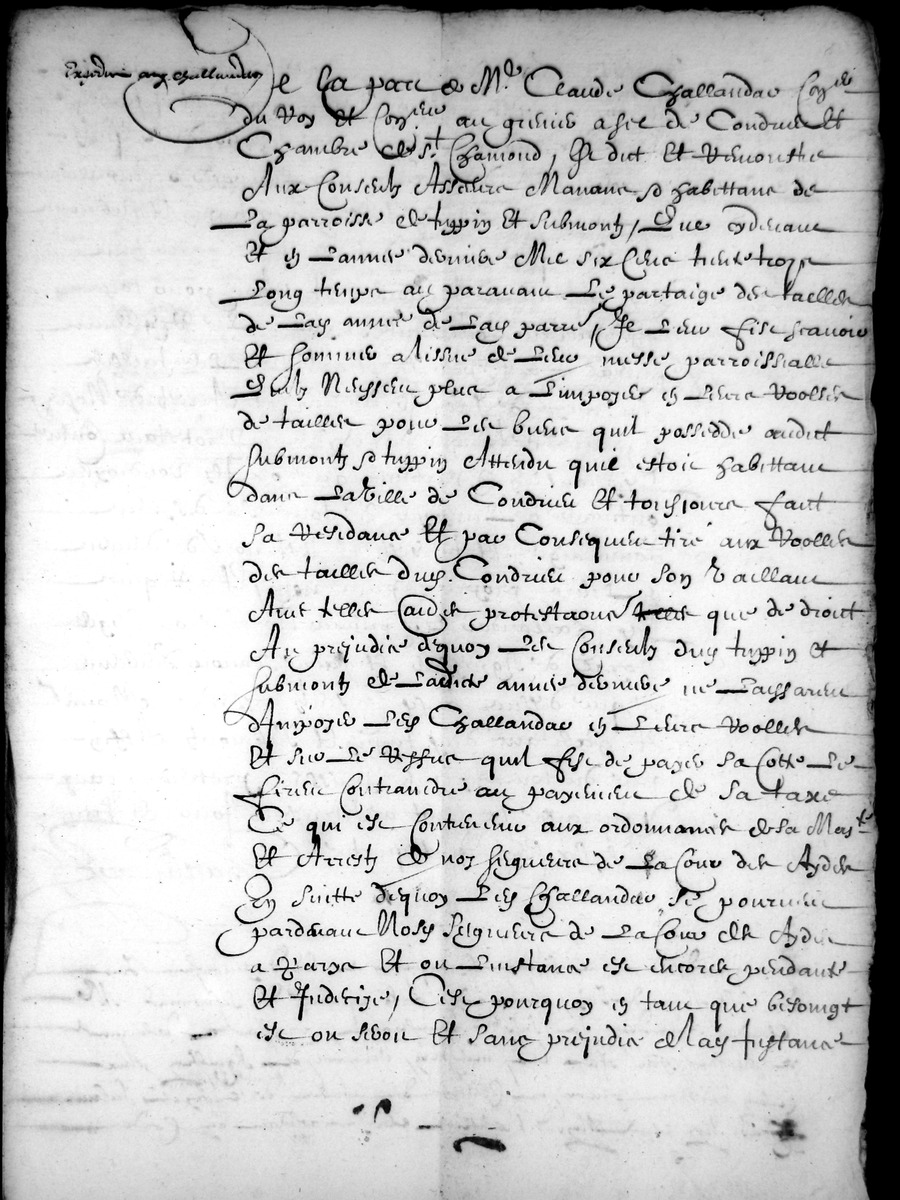 Expedié aux challandon
De la part de Mr Claude Challandar Con.er
du Roy et Con.eur au grenier a sel de Condrieu et
Chambre de St Chamond, Est dict et remonstre
Aux Consculz Asseeurs Manans et habittans de
La parroisse de tuppin et Submontz, Que cydevant
et en L'annee derniere Mil six cens trente troys
Long temps au paravant Le partaige des tailles
de Lad. annee de Lad. parre, Il Leur fist scavoir
et sommer a lissue de Leur messe parroissialle
Quilz Neussent plus a L'imposer en Leurs Roolles
de tailles pour Les biens quil possedde audict
Submontz et tuppin Attendu quil estoit habittant
dans La Ville de Condrieu et tousjours faict
sa Residance et par Consequent tiré aux Roolles
des tailles dud. Condrieu pour son Vaillant
Avec telles protestaons que de droict
Au prejudice dequoy Les Consculz dud. tuppin et
Submontz de Ladicte annee derniere ne Laissarent
d'Imposer Led. Challandar en Leurs Roolles
et sur Le Reffus quil fist de payer sa Cotte Le
firent Contraindre au payement de sa taxe
Ce qui est Contrevenir aux ordonnances de sa Mag.té
et Arrestz de noz seigneurs de La Cour des Aydes
En suitte dequoy Led. Challandar se pourveut
pardevant Nosd. Seigneurs de La Cour des Aydes
a Parys et ou L'instance est encores pendante
et Indecise, C'est pourquoy en tant que besoingt
est ou seroit et sans prejudice de Lad. Instance